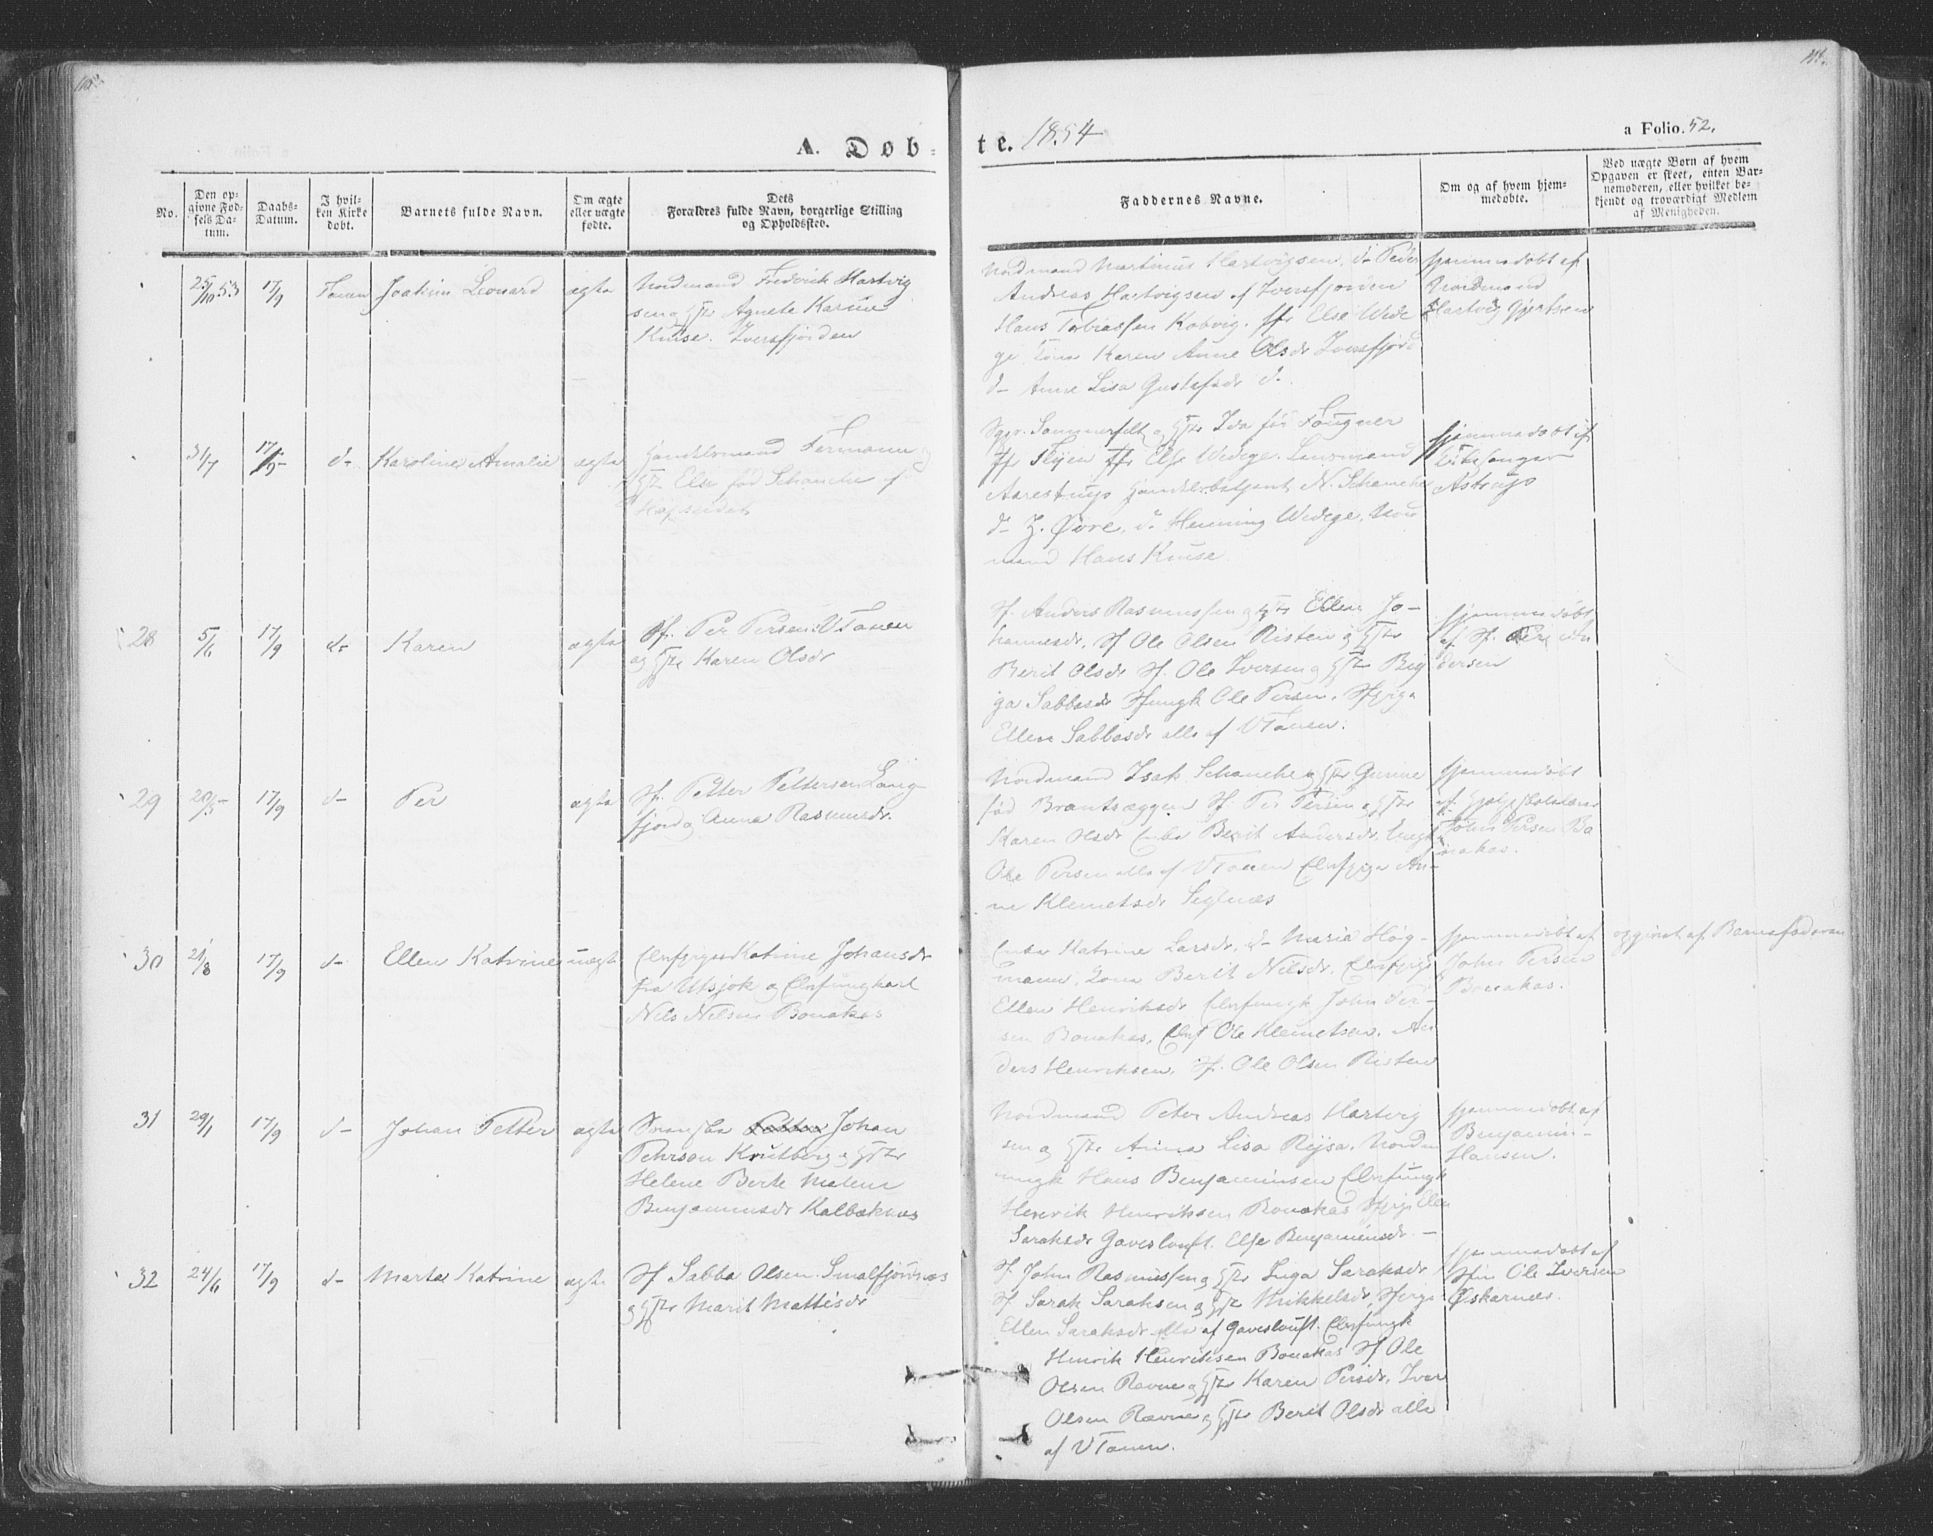 A. Døb-
te. 1854
a Folio. 52.
No.
Den op-
givne Fød-
sels Da-
tum.
Daabs-
Datum.
I hvil-
ken Kirke
døbt.
Barnets fulde Navn.
Om ægte
eller uægte
fødte.
Dets
Forældres fulde Navn, borgerlige Stilling
og Opholdssted.
Faddernes Navne.
Om og af hvem hjem-
medøbte.
Ved uægte Børn af hvem
Opgaven er skeet, enten Bar-
nemoderen, eller hvilket be-
kjendt og troværdigt Medlem
af Menigheden.
25/10 53
17/9
Tanen
Joakim Leonard
ægte
Nordmand Frederik Hartvig
sen og Hstr Agnete Karine
Kruse. Iversfjorden
Nordmand Martinus Hartvigsen, d- Peder
Andreas Hartvigsen af Iversfjorden
Hans Tobiassen Kobvig, Else Wede
ge, Kona Karen Anne Olsdr Iversfjord
d- Anne Lisa Gustafsdr d-
hjemmedøbt af
Nordmand
Hartvig Gjertsen
31/7
17/9
d-
Karoline Amalie
ægte
Handelsmand Fermann og
Hstr Else født Schanche af
Sgpr. Sommerfelt og Hstr Ida fød Lougner
Else Wedege. Lensmand
Aarestrup Handelsbetjent N. Schanche
d- Z. Øvre, d- Henning Wedege, Nord
mand Hans Kruse.
hjemmedøbt af
Kirkesanger
Astrup
28
5/6
17/9
d-
Karen
ægte
Sf. Per Persen V Tanen
og Hstr Karen Olsdr
Sf. Anders Rasmussen og Hstr Ellen Jo-
hannesdr, Sf Ole Olsen Risten og Hstr
Berit Olsdr Sf. Ole Iversen og Hstr Big
ga Sabbasdr Sfungk Ole Persen, Sfpiga
Ellen Sabbasdr alle af V Tanen.
hjemmedøbt
af Sf. Per An
dersen
29
20/5
17/9
d-
Per
ægte
Sf. Petter Pettersen Lang
fjord og Anna Rasmusdr.
Nordmand Isak Schanche og Hstr Gunne
fød Brantsæggen Sf Per Persen og Hstr
Karen Olsdr Enke Berit Andersdr, Ungk
Ole Persen alle af V Tanen Elvfpiga An-
ne Klemetsdr Seglnæs
hjemmedøbt
af Hjelpeskolelærer
John Persen Bo
nakas.
30
21/8
17/9
d-
Ellen Katrine
uægte
Elvfpiga Katrine Johansdr
fra Utsjok og Elvfungkarl
Nils Nilsen Bonakas
Enke Katrine Larsdr, d- Maria Høg-
mann, Kona Berit Nilsdr, Elvfpiga
Ellen Henriksdr Elvfungk John Per-
sen Bonakas, Elvf Ole Klemetsen, An
ders Henriksen, Sf. Ole Olsen Risten
hjemmedøbt af
John Persen
Bonakas.
opgivet af Barnefaderen
31
29/1
17/9
d-
Johan Petter
ægte
Svenske Johan
Pehrson Krutberg og Hstr
Helene Berte Malene
Benjaminsdr Kalbaknæs
Nordmand Peter Andreas Hartvig
sen og Hstr Anna Lisa Rejsa. Nordm
ungk Hans Benjaminsen Elvfungk
Henrik Henriksen Bonakas Sfpiga Ellen
Saraksdr Gavesluuft. Else Benjaminsdr. -
hjemmedøbt af
Benjamin-
Hansen.
32
24/6
17/9
d-
Marta Katrine
ægte
Sf Sabba Olsen Smalfjordnæs
og Hstr Marit Mattisdr
Sf. John Rasmussen og Hstr Inga Saraksdr,
Sf. Sarak Saraksen og Hstr Mikkelsdr, Sfpiga
Ellen Saraksdr alle af Gavesluuft. Elvfungk
Henrik Henriksen Bonakas Sf Ole
Olsen Ravna og Hstr Karen Persdr, Iver
Olsen Ravna og Hstr Berit Olsdr alle
af V Tanen.
hjemmedøbt af
Ole Iversen
Øskarnæs.